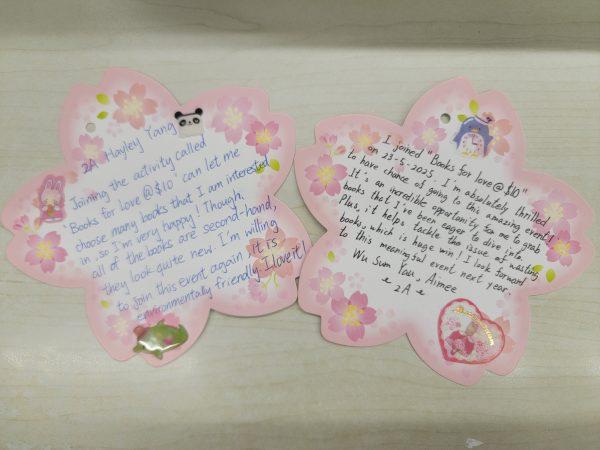 2A Hayley Yang
Joining the activity called
"Books for love @ $10" can let me
choose many books that I am interested
in, so I'm very happy! Though,
all of the books are second-hand,
they look quite new. I'm willing
to join this event again, it is
environmentally friendly. I love it!
I joined "Books for love @ $10"
on 23-5-2025. I'm absolutely thrilled
to have chance of going to this amazing event!
It's an incredible opportunity for me to grab
books that I've been eager to dive into.
Plus, it helps tackle the issue of wasting
books, which is huge win! I look forward
to this meaningful event next year.
Wu Sum Yau, Aimee
2A